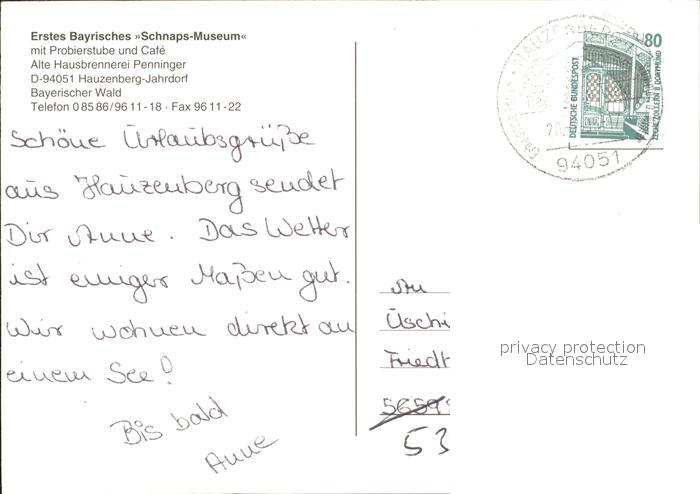 Erstes Bayrisches »Schnaps-Museum«
mit Probierstube und Café
Alte Hausbrennerei Penninger
D-94051 Hauzenberg-Jahrdorf
Bayerischer Wald
Telefon 0 85 86/96 11-18 · Fax 96 11-22
HAUZENBERG
94051
80
DEUTSCHE BUNDESPOST
ZECHE ZOLLERN II DORTMUND
Schöne Urlaubsgrüße
aus Hauzenberg sendet
Dir Anne. Das Wetter
ist einiger Maßen gut.
Wir wohnen direkt an
einem See!
Bis bald
Anne
An
Uschi
Friedt
53
privacy protection
Datenschutz